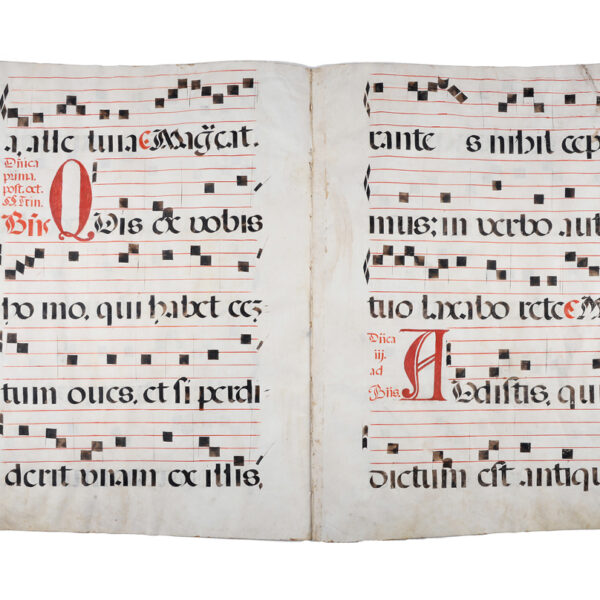 a, alle luia E Mag̃cat.
Dñica
prima.
post. oct.
Bñs Quis ex vobis
homo, qui habet cen-
tum oues, et si perdi-
derit vnam ex illis,
rante s nihil cepi
mus: in verbo aut
tuo laxabo rete E
Dñica
iij.
ad
Bñs. Avdistis, qui
dictum est antiqu